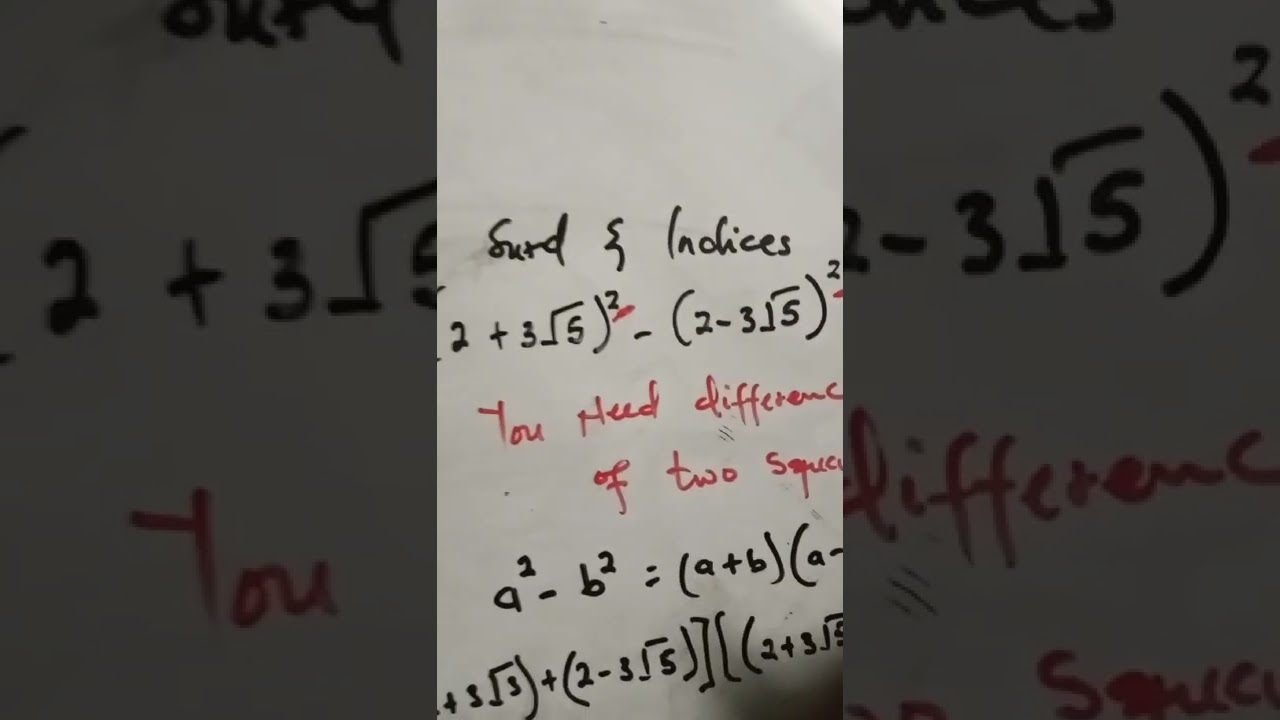 Surd & Indices
2 + 3√5)² - (2 - 3√5)²
You Need differenc
of two squa
a² - b² = (a+b)(a-
+ 3√3) + (2 - 3√5)][(2 + 3√5